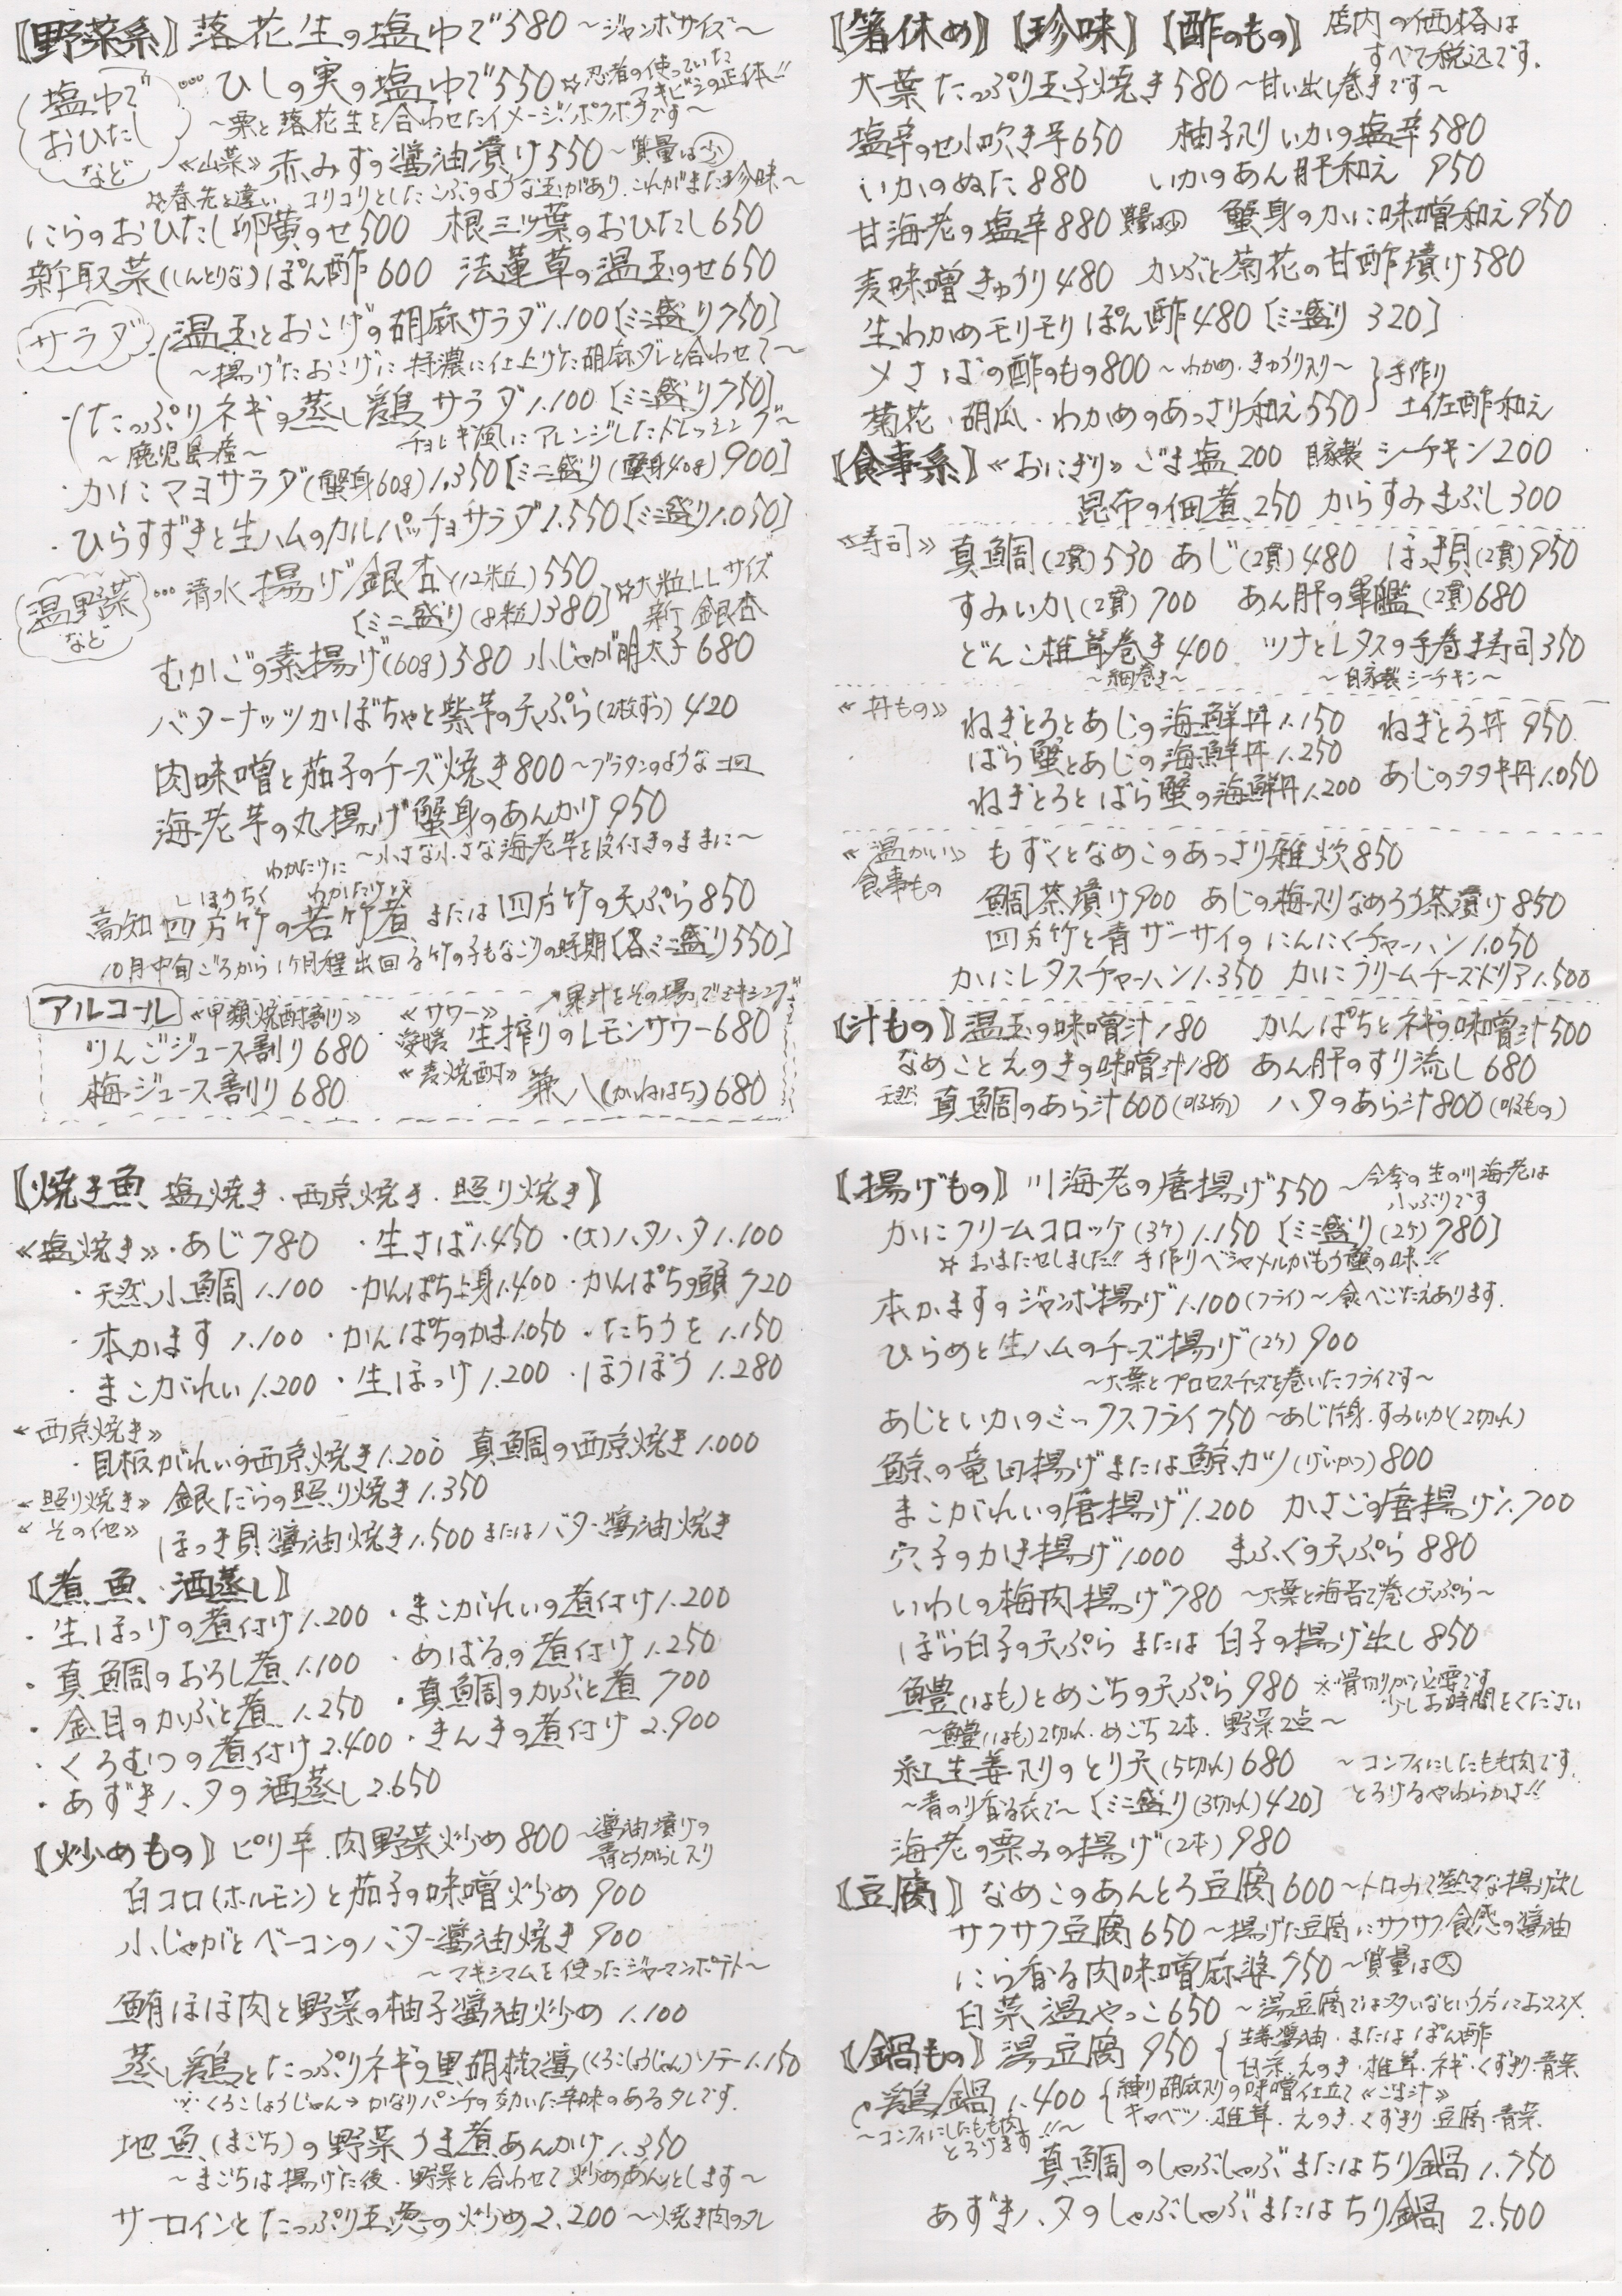 【野菜系】落花生の塩ゆで580 ～ジャンボサイズ～
塩ゆで おひたし など
…ひしの実の塩ゆで550 ☆忍者の使っていたマキビシの正体!!
～栗と落花生を合わせたイメージ!ホクホクです～
《山菜》赤みずの醤油漬け550 ～質量は小
☆春先と違い、コリコリとしたこぶのような玉があり、これがまた珍味～
にらのおひたし卵黄のせ500 根三ツ葉のおひたし650
新取菜(しんとりな)ぽん酢600 法蓮草の温玉のせ650
サラダ
・温玉とおこげの胡麻サラダ1.100[ミニ盛り750]
～揚げたおこげに特濃に仕上げた胡麻ダレと合わせて～
・たっぷりネギの蒸し鶏サラダ1.100[ミニ盛り750]
～鹿児島産～ チョレギ風にアレンジしたドレッシング～
・かにマヨサラダ(蟹身60g)1.350[ミニ盛り(蟹身40g)900]
・ひらすずきと生ハムのカルパッチョサラダ1.550[ミニ盛り1.050]
温野菜など
…清水揚げ銀杏(12粒)550
[ミニ盛り(8粒)380] ☆大粒LLサイズ 新銀杏
むかごの素揚げ(60g)580 小じゃが明太子680
バターナッツかぼちゃと紫芋の天ぷら(2枚ずつ)420
肉味噌と茄子のチーズ焼き800～グラタンのような一皿
海老芋の丸揚げ蟹身のあんかけ950
～小さな小さな海老芋を皮付きのままに～
わかたけに
しほうちく
高知 四方竹の若竹煮 または四方竹の天ぷら850
10月中旬ごろから1ヶ月程出回る竹の子もなごりの時期[各ミニ盛り550]
アルコール 《甲類焼酎割り》 《サワー》 ↗果汁をその場でミキシング
りんごジュース割り680 愛媛 生搾りのレモンサワー680
梅ジュース割り680 《麦焼酎》 兼八(かねはち)680
【箸休め】【珍味】【酢のもの】 店内の価格はすべて税込です。
大葉たっぷり玉子焼き580～甘い出し巻きです～
塩辛のせ小吹き芋650 柚子入りいかの塩辛580
いかのぬた880 いかのあん肝和え 950
甘海老の塩辛880 蟹身のかに味噌和え950
麦味噌きゅうり480 かぶと菊花の甘酢漬け580
生わかめモリモリぽん酢480[ミニ盛り 320]
〆さばの酢のもの800～わかめ・きゅうり入り～
菊花・胡瓜・わかめのあっさり和え550 }手作り 土佐酢和え
【食事系】《おにぎり》ごま塩200 自家製シーチキン200
昆布の佃煮250 からすみまぶし300
《寿司》真鯛(2貫)530 あじ(2貫)480 ほっき貝(2貫)950
すみいか(2貫)700 あん肝の軍艦(2貫)680
どんこ椎茸巻き400 ツナとレタスの手巻き寿司350
～細巻き～ ～自家製シーチキン～
《丼もの》ねぎとろとあじの海鮮丼1.150 ねぎとろ丼 950
ばら蟹とあじの海鮮丼1.250
ねぎとろとばら蟹の海鮮丼1.200 あじのタタキ丼1.050
《温かい食事もの》もずくとなめこのあっさり雑炊850
鯛茶漬け900 あじの梅入りなめろう茶漬け850
四方竹と青ザーサイのにんにくチャーハン1.050
かにレタスチャーハン1.350 かにクリームチーズドリア1.500
【汁もの】温玉の味噌汁180 かんぱちとネギの味噌汁500
なめことえのきの味噌汁180 あん肝のすり流し680
天然 真鯛のあら汁600(吸物) ハタのあら汁800(吸もの)
【焼き魚 塩焼き・西京焼き・照り焼き】
《塩焼き》・あじ780 ・生さば1.450 ・(大)ハタハタ1.100
・天然小鯛1.100 ・かんぱち上身1.400 ・かんぱちの頭720
・本かます 1.100 ・かんぱちのかま1.050 ・たちうを1.150
・まこがれい1.200 ・生ほっけ1.200 ・ほうぼう1.280
《西京焼き》
・目板がれいの西京焼き1.200 真鯛の西京焼き1.000
《照り焼き》銀だらの照り焼き1.350
《その他》ほっき貝醤油焼き1.500またはバター醤油焼き
【煮魚・酒蒸し】
・生ほっけの煮付け1.200 ・まこがれいの煮付け1.200
・真鯛のおろし煮1.100 ・めばるの煮付け1.250
・金目のかぶと煮 1.250 ・真鯛のかぶと煮 700
・くろむつの煮付け2.400 ・きんきの煮付け2.900
・あずきハタの酒蒸し2.650
【炒めもの】ピリ辛 肉野菜炒め800 ～醤油漬けの青とうがらし入り
白コロ(ホルモン)と茄子の味噌炒め900
小じゃがとベーコンのバター醤油焼き900
～マキシマムを使ったジャーマンポテト～
鮪ほほ肉と野菜の柚子醤油炒め1.100
蒸し鶏とたっぷりネギの黒胡椒醤(くろこしょうじゃん)ソテー1.150
※くろこしょうじゃん→かなりパンチの効いた辛味のあるタレです。
地魚(まごち)の野菜うま煮あんかけ1.350
～まごちは揚げた後、野菜と合わせて炒めあんとします～
サーロインとたっぷり玉葱の炒め2.200～焼き肉のタレ
【揚げもの】川海老の唐揚げ550 ～今季の生の川海老は小ぶりです
かにクリームコロッケ(3ケ)1.150[ミニ盛り(2ケ)780]
☆おまたせしました!!手作りベシャメルがもう蟹の味!!
本かますのジャンボ揚げ1.100(フライ)～食べごたえあります。
ひらめと生ハムのチーズ揚げ(2ケ)900
～大葉とプロセスチーズを巻いたフライです～
あじといかのミックスフライ750～あじ片身・すみいか(2切れ)
鯨の竜田揚げまたは鯨カツ(げいかつ)800
まこがれいの唐揚げ1.200 かさごの唐揚げ1.700
穴子のかき揚げ1.000 まふぐの天ぷら880
いわしの梅肉揚げ780 ～大葉と海苔で巻く天ぷら～
ぼら白子の天ぷら または 白子の揚げ出し850
鱧(はも)とめごちの天ぷら980 ※骨切りが必要です少しお時間をください
～鱧(はも)2切れ・めごち2本・野菜2点～
紅生姜入りのとり天(5切れ)680 ～コンフィにしたもも肉です。
～青のり香る衣で～[ミニ盛り(3切れ)420] とろけるやわらかさ!!
海老の栗みの揚げ(2本)980
【豆腐】なめこのあんとろ豆腐600～トロみで熱々な揚げ出し
サクサク豆腐650～揚げた豆腐にサクサク食感の醤油
にら香る肉味噌麻婆750～質量は大
白菜温やっこ650 ～湯豆腐では多いなという方におススメ
【鍋もの】湯豆腐 950 {生姜醤油・またはぽん酢
白菜・えのき・椎茸・ネギ・くずきり・青菜
鶏鍋1.400 {練り胡麻入りの味噌仕立て《ごま汁》
キャベツ・椎茸・えのき・くずきり・豆腐・青菜
～コンフィにしたもも肉 とろけます!!～
真鯛のしゃぶしゃぶまたはちり鍋1.750
あずきハタのしゃぶしゃぶまたはちり鍋 2.500